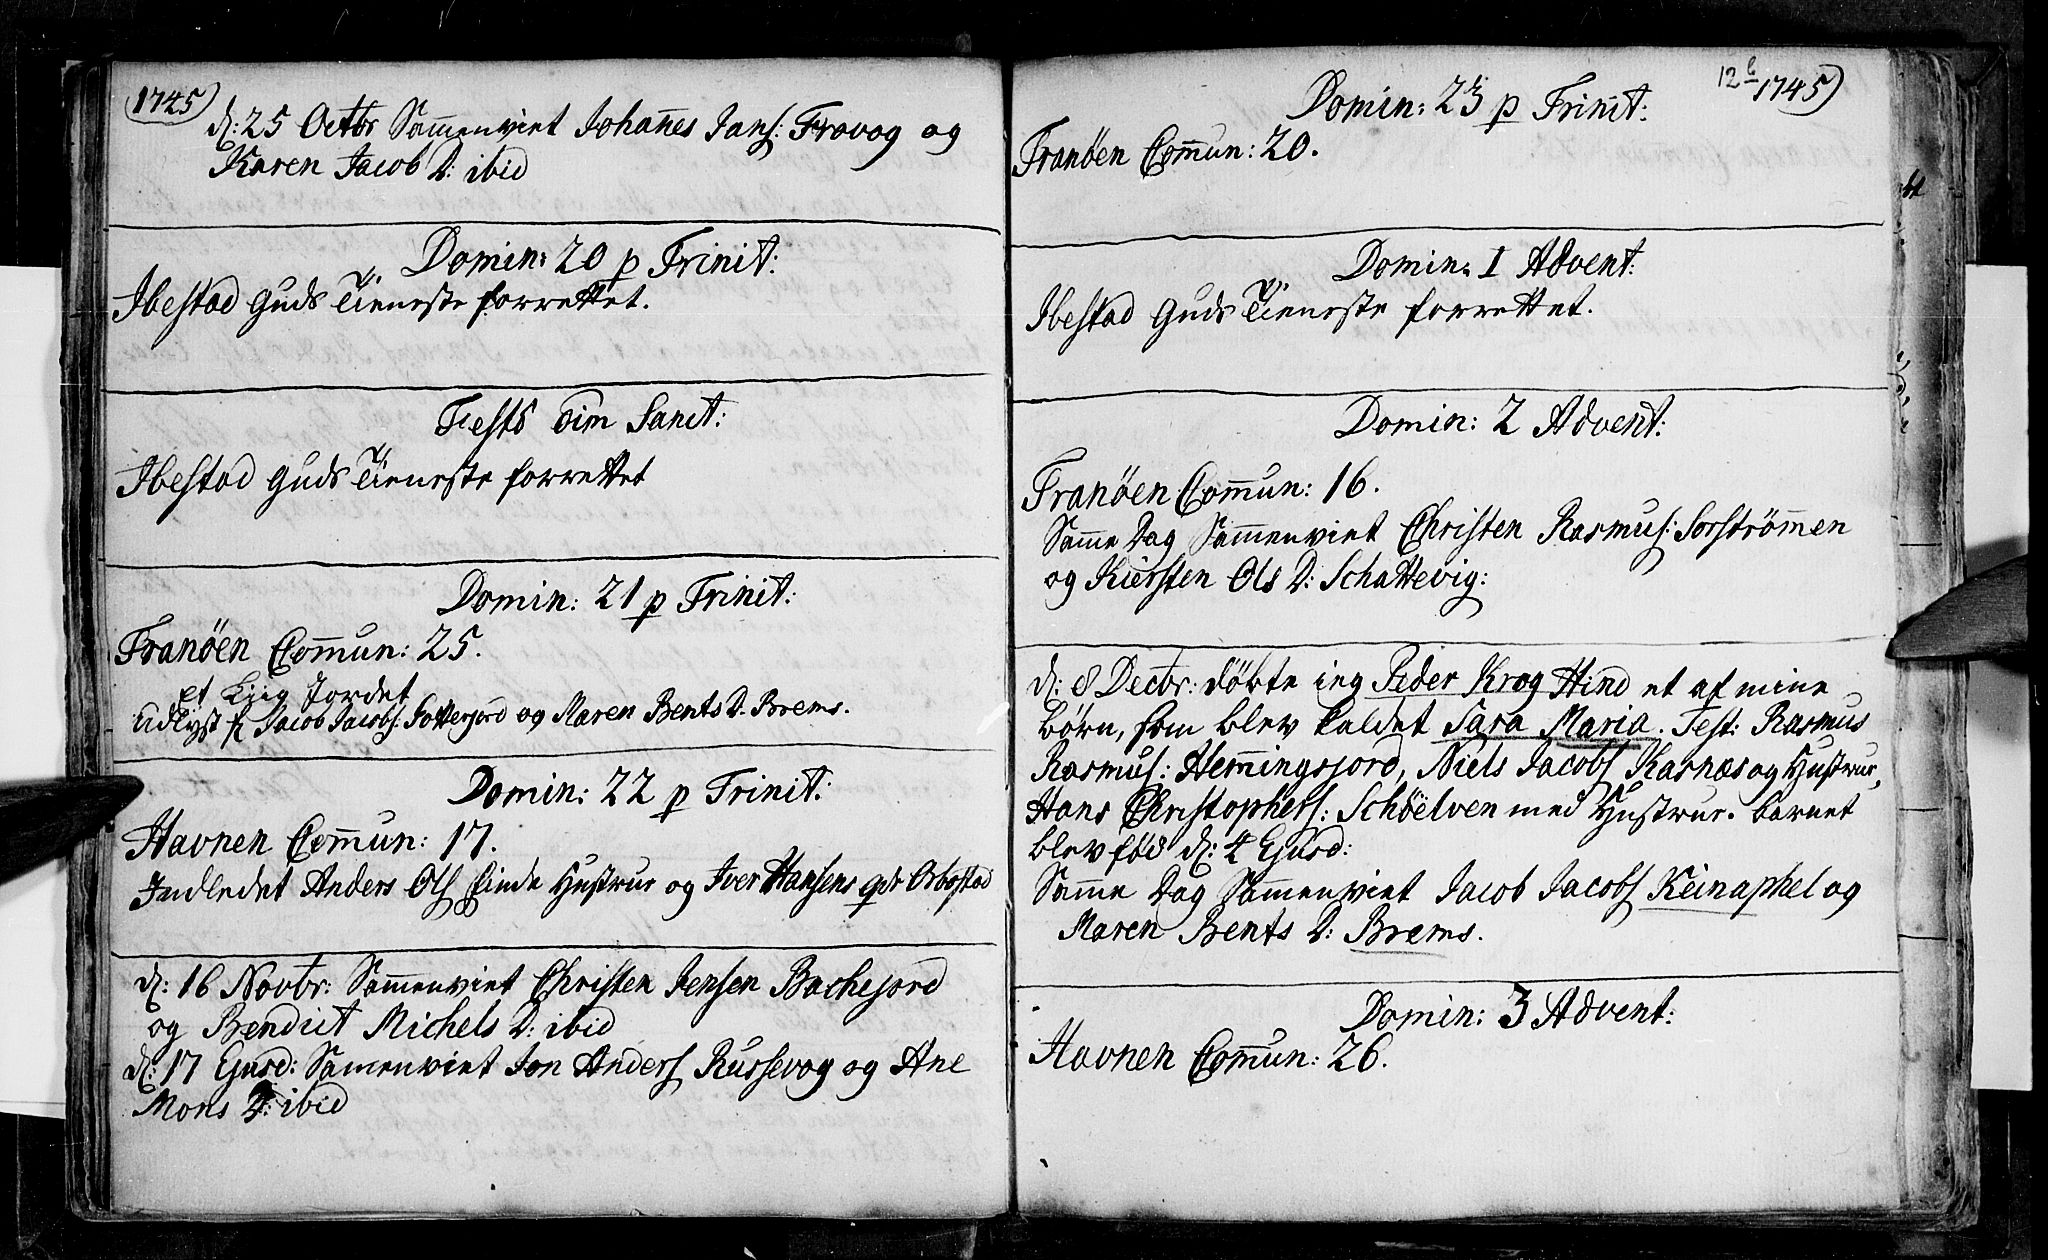 1745
d: 25 Octbr Sam̅enviet Johan̅es Jans: Frovog og
Karen Jacob D: ibid
Domin: 20 p Trinit:
Ibestad Guds Tieneste forrettet.
Festo Om Sanct:
Ibestad Guds Tieneste forrettet
Domin: 21 p Trinit:
Tranöen Com̅un: 25.
et Liig Jordet
Udlyst f Jacob Jacobs: Sotterjord og Maren Bents D: Brems.
Domin: 22 p Trinit:
Havnen Com̅un: 17.
Indledet Anders Ols Hustrue og Iver Hansens qdr Arbostad
d: 16 Novbr: Sam̅enviet Christen Jensen Bachejord
og Bendict Michels D: ibid
d: 17 Ejusd: Samenviet Jon Anders Russevog og Ane
Mons D: ibid
12 b 1745
Domin: 23 p Trinit:
Tranöen Com̅un: 20.
Domin: 1 Advent:
Ibestad Guds Tieneste forrettet.
Domin: 2 Advent:
Tranöen Com̅un: 16.
Sam̅e Dag Sam̅enviet Christen Rasmus: Sorström̅en
og Kiersten Ols D: Schattevig:
d: 8 Decbr: döbte ieg Peder Krog Hind et af mine
börn, som blev kaldet Sara Maria. Test: Rasmus
Rasmus: Hem̅ingsjord, Niels Jacobs Kasnæs og Hustrue,
Hans Christophers: Schöelven med Hustrue. barnet
blev föd d: 4 Ejusd:
Sam̅e Dag Sam̅enviet Jacob Jacobs Keinaphel og
Maren Bents D: Brems.
Domin: 3 Advent:
Havnen Com̅un: 26.